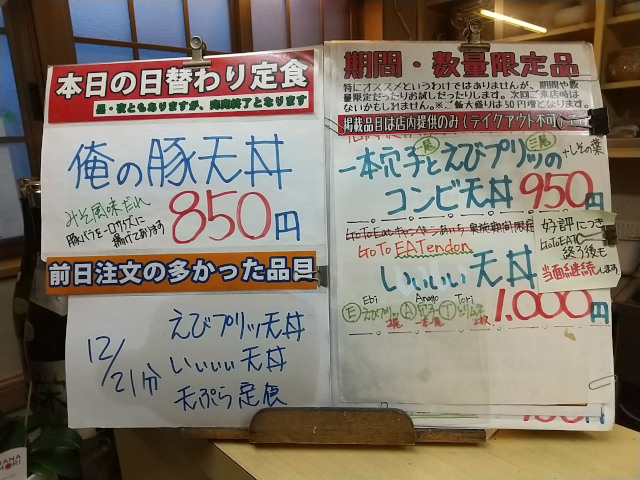 本日の日替わり定食
昼・夜ともありますが、完売終了となります
俺の豚天丼
みそ風味だれ
豚バラを一口サイズに
揚げてあります
850円
前日注文の多かった品目
12/21分
えびプリッツ天丼
いいいい天丼
天ぷら定食
期間・数量限定品
特にオススメというわけではありませんが、期間や数
量限定だったりお試しだったりします。次回ご来店時は
ないかもしれません。※ご飯大盛りは50円増となります。
掲載品目は店内提供のみ(テイクアウト不可)
一本穴子とえびプリッツの
+しその葉
コンビ天丼 950円
GoToEatキャンペーンあいち 実施期間限定
GoTo EATendon
いいいい天丼
1,000円
好評につき
GoToEAT
終了後も
当面継続します
Ebi Anago Tori